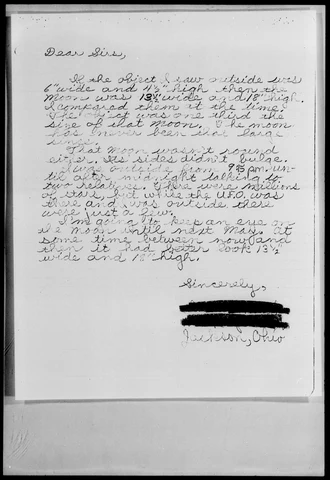 Dear Sirs,
If the object I saw outside was
6" wide and 4½" high then the
Moon was 13½" wide and 18" high.
I compared them at the time.
The object was one third the
size of that Moon. The moon
has never been that large
since.
That Moon wasn't round
either. Its sides didn't bulge.
I was outside from 9 P.M. un-
til after midnight talking to
two relatives. There were millions
of stars, but while the U.F.O. was
there and I was outside there
were just a few.
I'm going to keep an eye on
the moon until next May. At
some time between now and
then it had better look 13½"
wide and 18" high.
Sincerely,
Jackson, Ohio